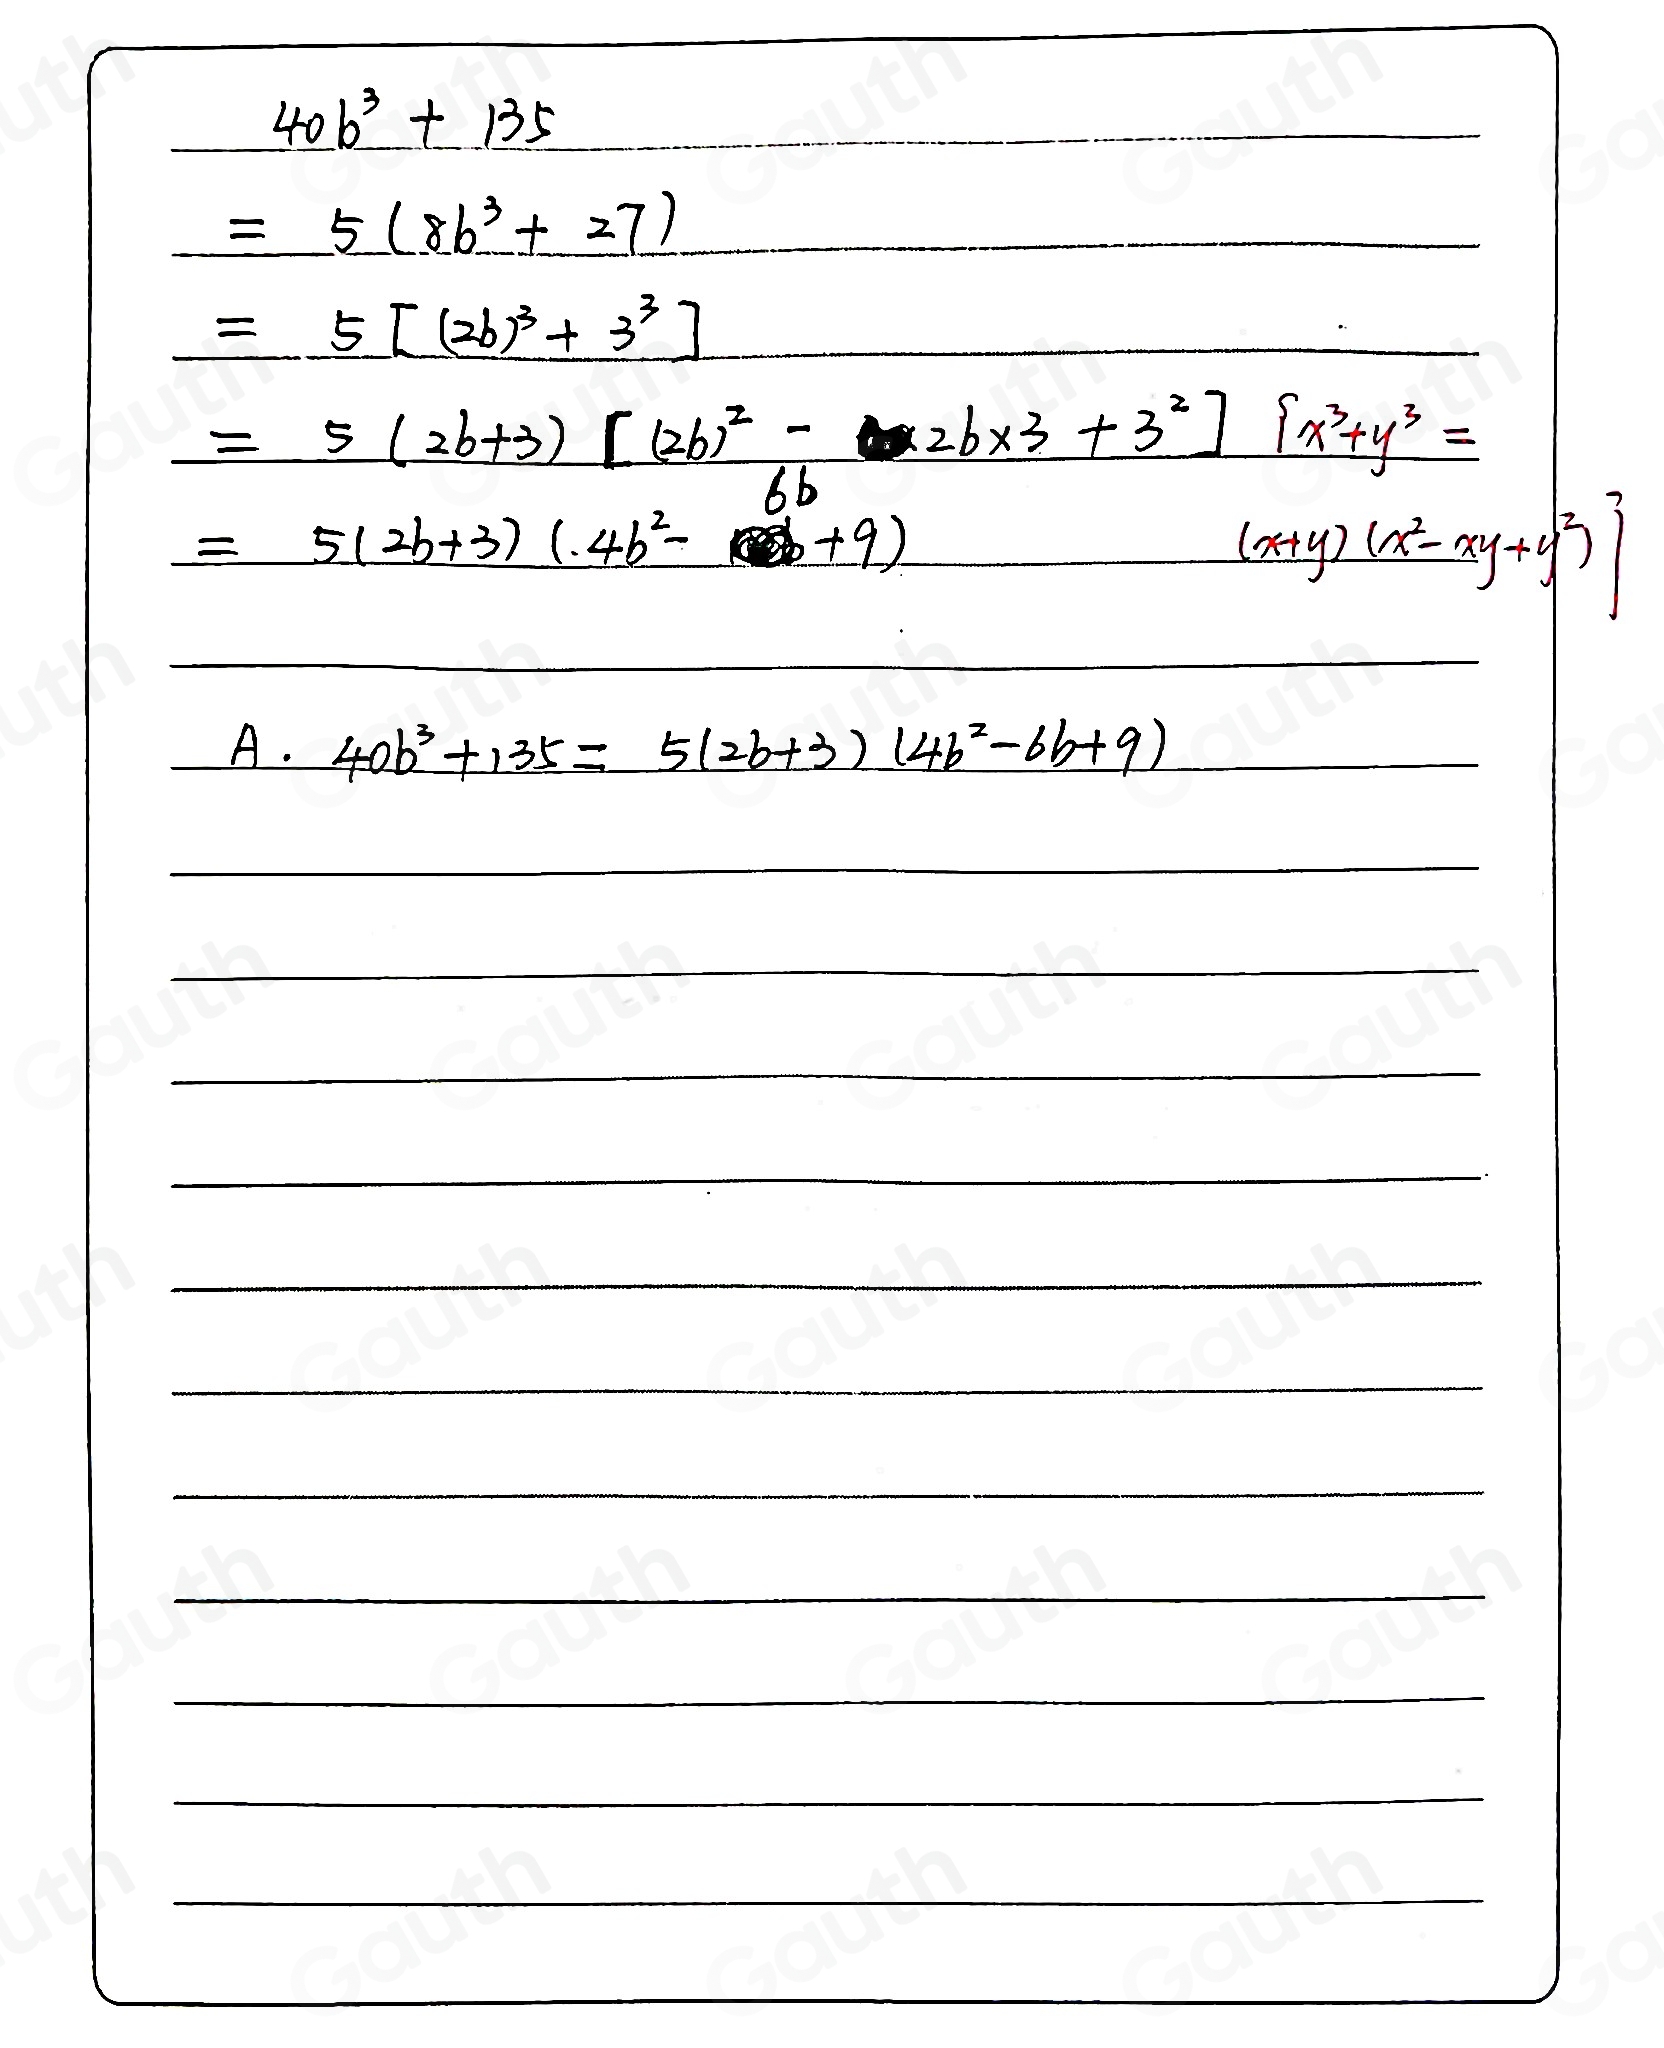 40b³ + 135
= 5 (8b³ + 27)
= 5 [(2b)³ + 3³]
= 5 (2b+3) [(2b)² - 2b×3 + 3²] [x³+y³ =
6b
= 5(2b+3) (4b² - +9) (x+y) (x²-xy+y²)]
A. 40b³+135 = 5(2b+3) (4b²-6b+9)